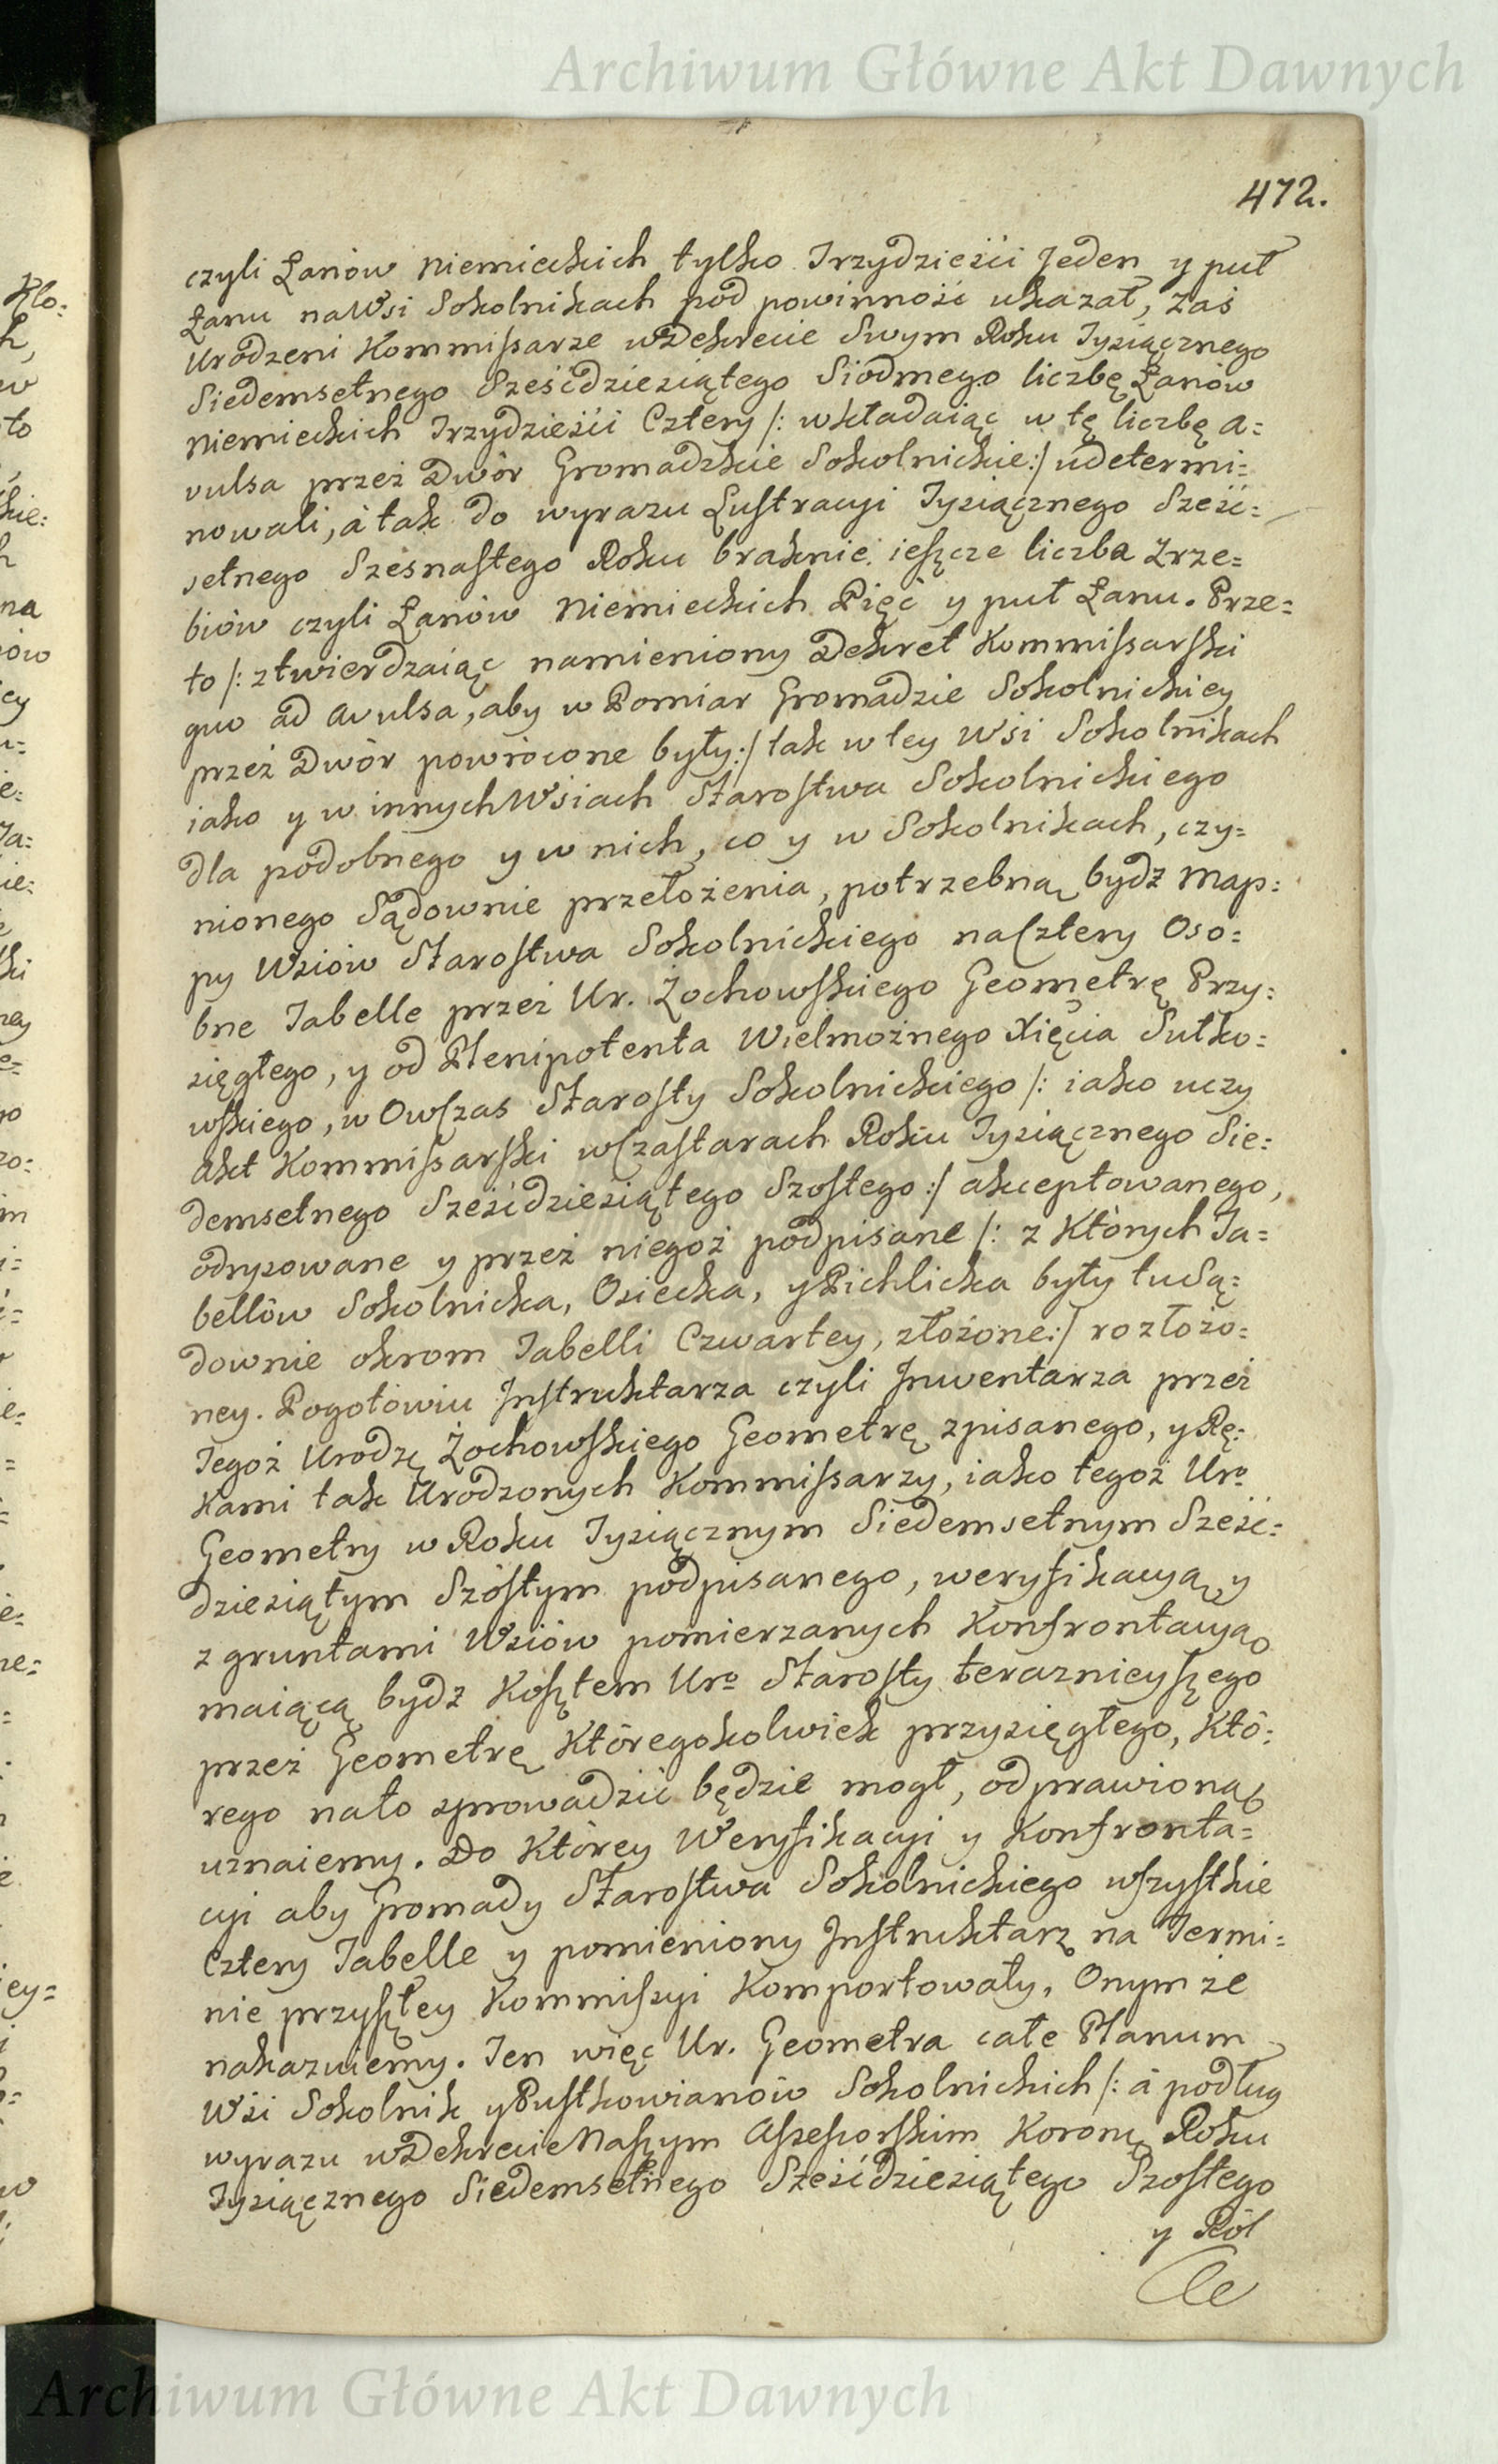 Archiwum Główne Akt Dawnych
472.
czyli Łanów Niemieckich tylko Trzydzieści Jeden y puł
Łanu na Wsi Sokolnikach pod powinność ukazał, zaś
Urodzeni Kommissarze w Dekrecie Swym Roku Tysiącznego
Siedemsetnego Sześćdziesiątego Siodmego liczbę Łanów
Niemieckich Trzydzieści Cztery /: wkładaiąc w tę liczbę a=
vulsa przez Dwór Gromadzkie Sokolnickie :/ udetermi=
nowali, à tak do wyrazu Lustracyi Tysiącznego Sześć=
setnego Szesnastego Roku braknie ieszcze liczba Zrze=
biów czyli Łanów Niemieckich Pięć y puł Łanu. Prze=
to /: ztwierdzaiąc namieniony Dekret Kommissarski
quo ad avulsa, aby w Pomiar Gromadzie Sokolnickiey
przez Dwór powrócone były :/ tak w tey Wsi Sokolnikach
iako y w innych Wsiach Starostwa Sokolnickiego
dla podobnego y w nich, co y w Sokolnikach, czy=
nionego Sądownie przełożenia, potrzebną bydz Map=
py Wsiów Starostwa Sokolnickiego na Cztery Oso=
bne Tabelle przez Ur. Żochowskiego Geometrę Przy=
sięgłego, y od Plenipotenta Wielmożnego Xięcia Sułko=
wskiego, w Owczas Starosty Sokolnickiego /: iako uczy
Akt Kommissarski w Czastarach Roku Tysiącznego Sie=
demsetnego Sześćdziesiątego Szostego :/ akceptowanego,
odrysowane y przez niegoż podpisane /: z Których Ta=
bellów Sokolnicka, Osiecka, y Pichlicka były tu Są=
downie okrom Tabelli Czwartey, złożone :/ rozłożo=
ney. Pogotowiu Instruktarza czyli Inwentarza przez
Tegoż Urodzę Żochowskiego Geometrę zpisanego, y Rę=
kami tak Urodzonych Kommissarzy, iako tegoż Uro
Geometry w Roku Tysiącznym Siedemsetnym Sześć=
dziesiątym Szóstym podpisanego, weryfikacyą y
z gruntami Wsiów pomierzanych Konfrontacyą
maiącą bydz Kosztem Uro Starosty terazniejszego
przez Geometrę Któregokolwiek przysięgłego, Któ=
rego nato zprowadzić będzie mogł, odprawioną
uznaiemy. Do Którey Weryfikacyi y Konfronta=
cyi aby Gromady Starostwa Sokolnickiego wszystkie
Cztery Tabelle y pomieniony Instruktarz na Termi=
nie przyszłey Kommiszyi Komportowały, Onym że
nakazuiemy. Ten więc Ur. Geometra całe Planum
Wsi Sokolnik y Pustkowianów Sokolnickich /: à podług
wyrazu w Dekrecie Naszym Assessorskim Koronę Roku
Tysiącznego Siedemsetnego Sześćdziesiątego Szostego
y Ról
Archiwum Główne Akt Dawnych